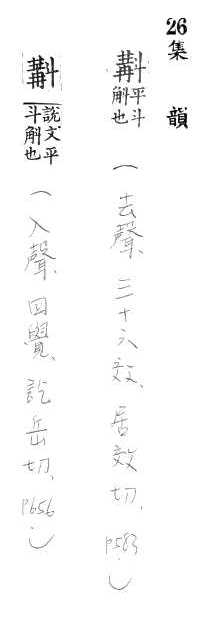 26集韻
㪺平斗斛也(去聲、三十六效、居效切、p583。)
㪺說文平斗斛也(入聲、四覺、訖岳切、p656。)